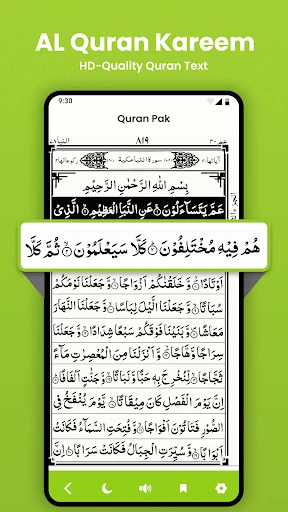 AL Quran Kareem
HD-Quality Quran Text
9:30
Quran Pak
عم ۳۰ ٨١٩ النبا ٧٨
سورة النبا مكية
بِسْمِ اللهِ الرَّحْمٰنِ الرَّحِيْمِ
عَمَّ يَتَسَآءَلُوْنَ ۝ عَنِ النَّبَاِ الْعَظِيْمِ ۝ الَّذِيْ
هُمْ فِيْهِ مُخْتَلِفُوْنَ ۝ كَلَّا سَيَعْلَمُوْنَ ۝ ثُمَّ كَلَّا
اَوْتَادًا ۝ وَّخَلَقْنٰكُمْ اَزْوَاجًا ۝ وَّجَعَلْنَا نَوْمَكُمْ
سُبَاتًا ۝ وَّجَعَلْنَا الَّيْلَ لِبَاسًا ۝ وَّجَعَلْنَا النَّهَارَ
مَعَاشًا ۝ وَّبَنَيْنَا فَوْقَكُمْ سَبْعًا شِدَادًا ۝ وَّجَعَلْنَا
سِرَاجًا وَّهَّاجًا ۝ وَّاَنْزَلْنَا مِنَ الْمُعْصِرٰتِ مَآءً
ثَجَّاجًا ۝ لِّنُخْرِجَ بِهٖ حَبًّا وَّنَبَاتًا ۝ وَّجَنّٰتٍ اَلْفَافًا ۝
اِنَّ يَوْمَ الْفَصْلِ كَانَ مِيْقَاتًا ۝ يَّوْمَ يُنْفَخُ فِي
الصُّوْرِ فَتَاْتُوْنَ اَفْوَاجًا ۝ وَّفُتِحَتِ السَّمَآءُ فَكَانَتْ
اَبْوَابًا ۝ وَّسُيِّرَتِ الْجِبَالُ فَكَانَتْ سَرَابًا ۝ اِنَّ